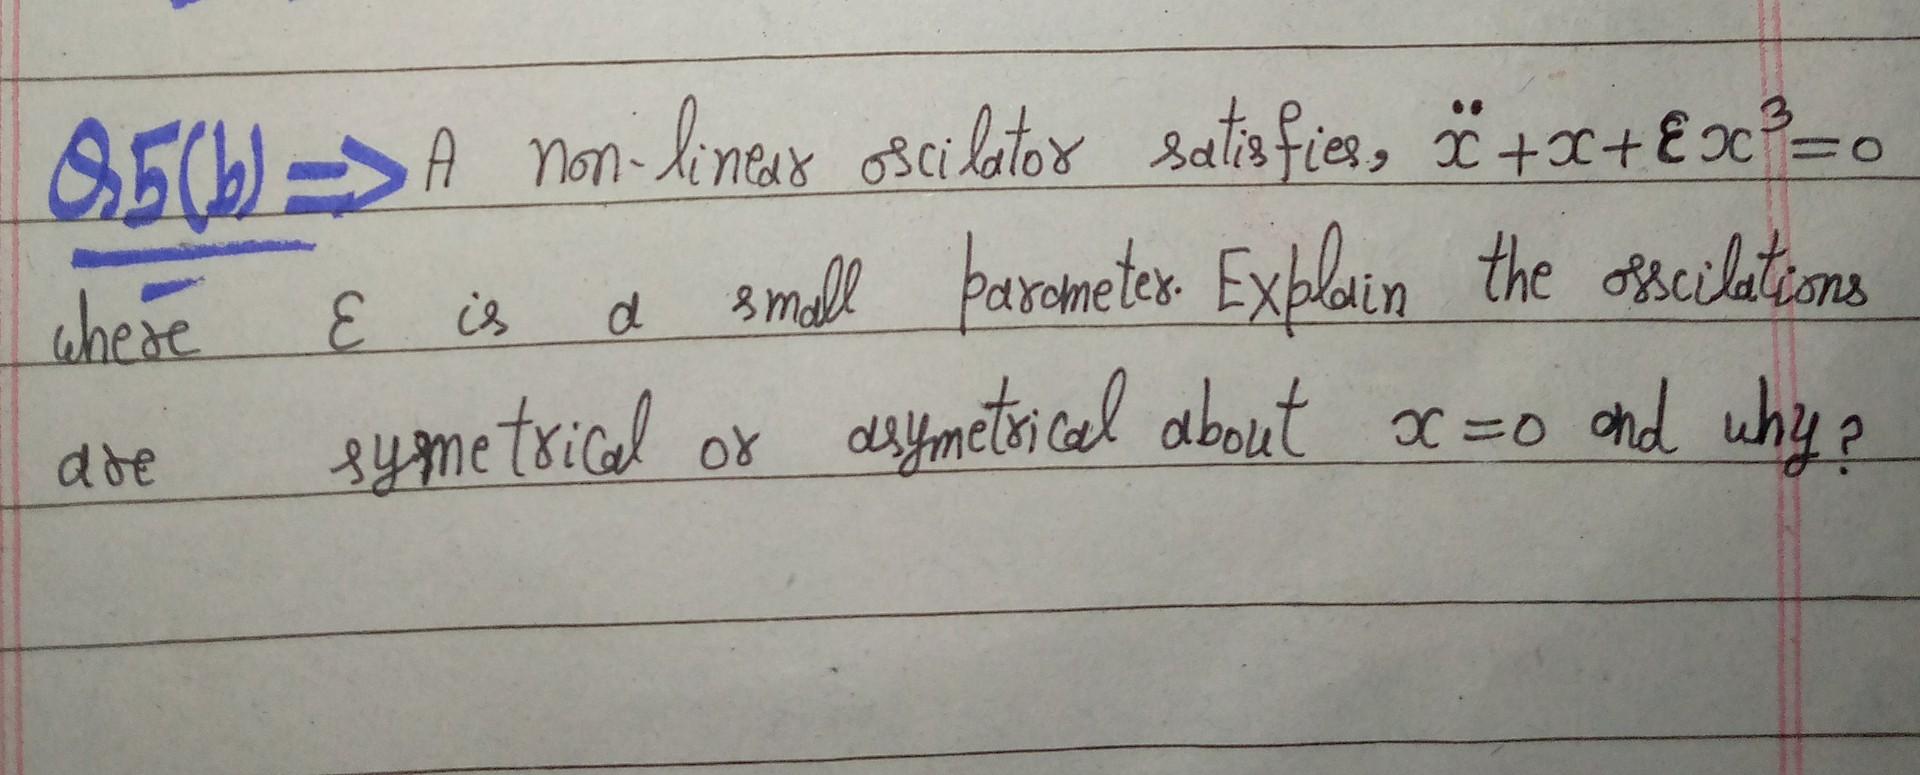 Q.5(b) => A non-linear oscilator satisfies, ẍ + x + εx³ = 0
where ε is a small parameter. Explain the osscilations
are symetrical or asymetrical about x = 0 and why?